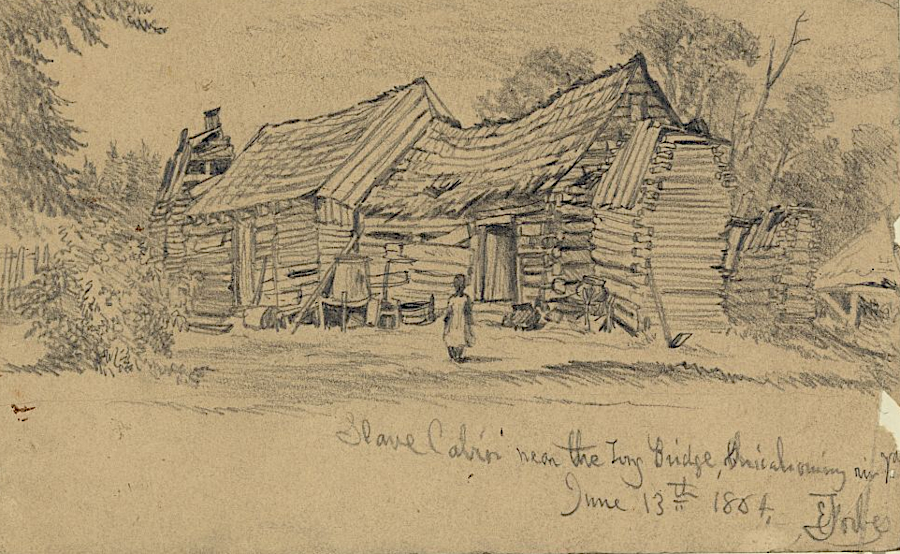 Slave Cabin near the Long Bridge, Chicahominy riv Va
June 13th 1864,
E Forbes